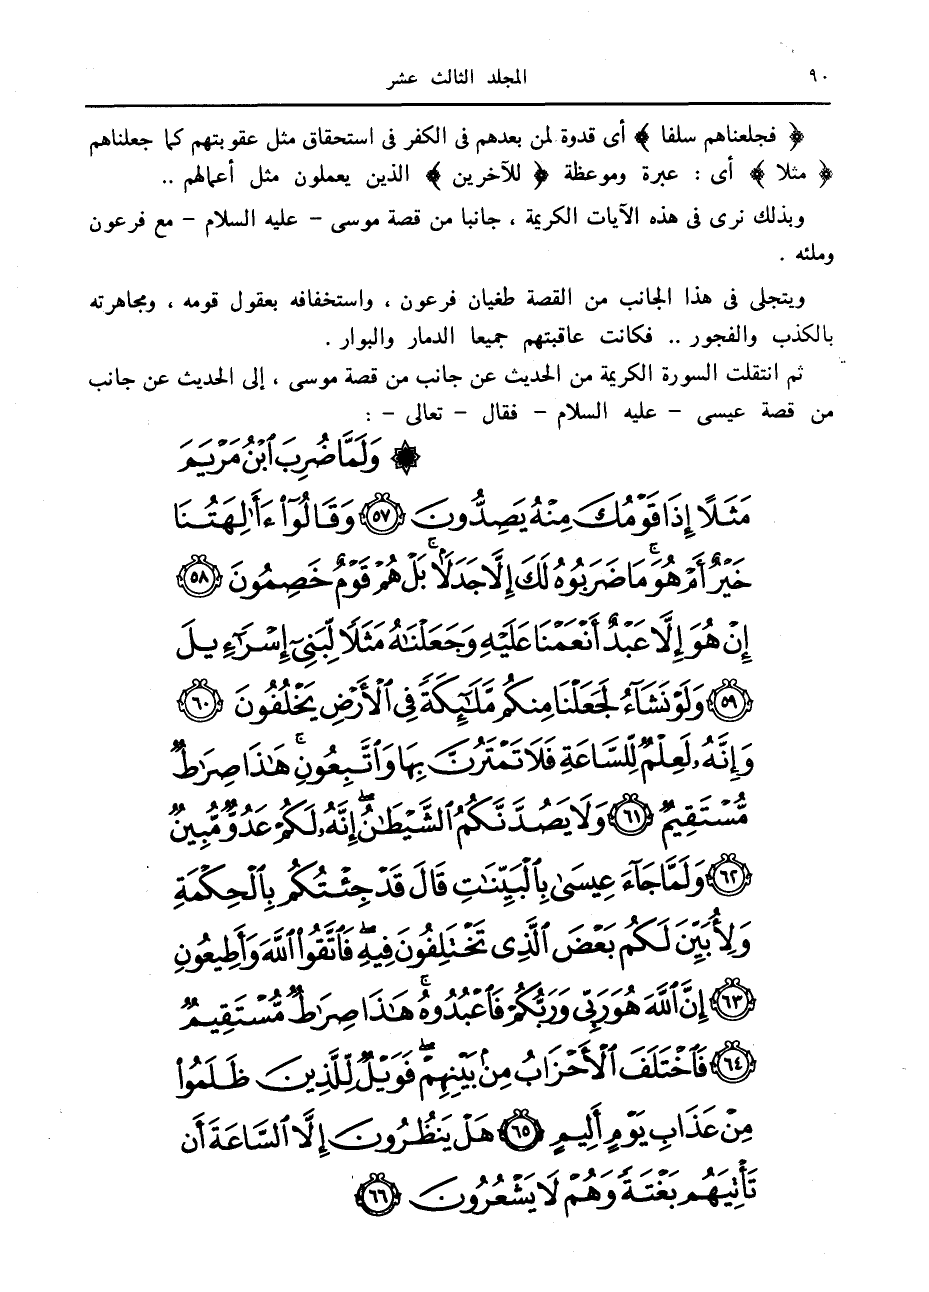 ٩٠ المجلد الثالث عشر
﴿ فجلعناهم سلفا ﴾ أى قدوة لمن بعدهم فى الكفر فى استحقاق مثل عقوبتهم كما جعلناهم
﴿ مثلا ﴾ أى : عبرة وموعظة ﴿ للآخرين ﴾ الذين يعملون مثل أعمالهم ..
وبذلك نرى فى هذه الآيات الكريمة ، جانبا من قصة موسى – عليه السلام – مع فرعون
وملئه .
ويتجلى فى هذا الجانب من القصة طغيان فرعون ، واستخفافه بعقول قومه ، ومجاهرته
بالكذب والفجور .. فكانت عاقبتهم جميعا الدمار والبوار .
ثم انتقلت السورة الكريمة من الحديث عن جانب من قصة موسى ، إلى الحديث عن جانب
من قصة عيسى – عليه السلام – فقال – تعالى – :
۞ وَلَمَّا ضُرِبَ ٱبْنُ مَرْيَمَ
مَثَلًا إِذَا قَوْمُكَ مِنْهُ يَصِدُّونَ ٥٧ وَقَالُوٓا۟ ءَأَٰلِهَتُنَا
خَيْرٌ أَمْ هُوَ ۚ مَا ضَرَبُوهُ لَكَ إِلَّا جَدَلًۢا ۚ بَلْ هُمْ قَوْمٌ خَصِمُونَ ٥٨
إِنْ هُوَ إِلَّا عَبْدٌ أَنْعَمْنَا عَلَيْهِ وَجَعَلْنَٰهُ مَثَلًا لِّبَنِىٓ إِسْرَٰٓءِيلَ
٥٩ وَلَوْ نَشَآءُ لَجَعَلْنَا مِنكُم مَّلَٰٓئِكَةً فِى ٱلْأَرْضِ يَخْلُفُونَ ٦٠
وَإِنَّهُۥ لَعِلْمٌ لِّلسَّاعَةِ فَلَا تَمْتَرُنَّ بِهَا وَٱتَّبِعُونِ ۚ هَٰذَا صِرَٰطٌ
مُّسْتَقِيمٌ ٦١ وَلَا يَصُدَّنَّكُمُ ٱلشَّيْطَٰنُ ۖ إِنَّهُۥ لَكُمْ عَدُوٌّ مُّبِينٌ
٦٢ وَلَمَّا جَآءَ عِيسَىٰ بِٱلْبَيِّنَٰتِ قَالَ قَدْ جِئْتُكُم بِٱلْحِكْمَةِ
وَلِأُبَيِّنَ لَكُم بَعْضَ ٱلَّذِى تَخْتَلِفُونَ فِيهِ ۖ فَٱتَّقُوا۟ ٱللَّهَ وَأَطِيعُونِ
٦٣ إِنَّ ٱللَّهَ هُوَ رَبِّى وَرَبُّكُمْ فَٱعْبُدُوهُ ۚ هَٰذَا صِرَٰطٌ مُّسْتَقِيمٌ
٦٤ فَٱخْتَلَفَ ٱلْأَحْزَابُ مِنۢ بَيْنِهِمْ ۖ فَوَيْلٌ لِّلَّذِينَ ظَلَمُوا۟
مِنْ عَذَابِ يَوْمٍ أَلِيمٍ ٦٥ هَلْ يَنظُرُونَ إِلَّا ٱلسَّاعَةَ أَن
تَأْتِيَهُم بَغْتَةً وَهُمْ لَا يَشْعُرُونَ ٦٦